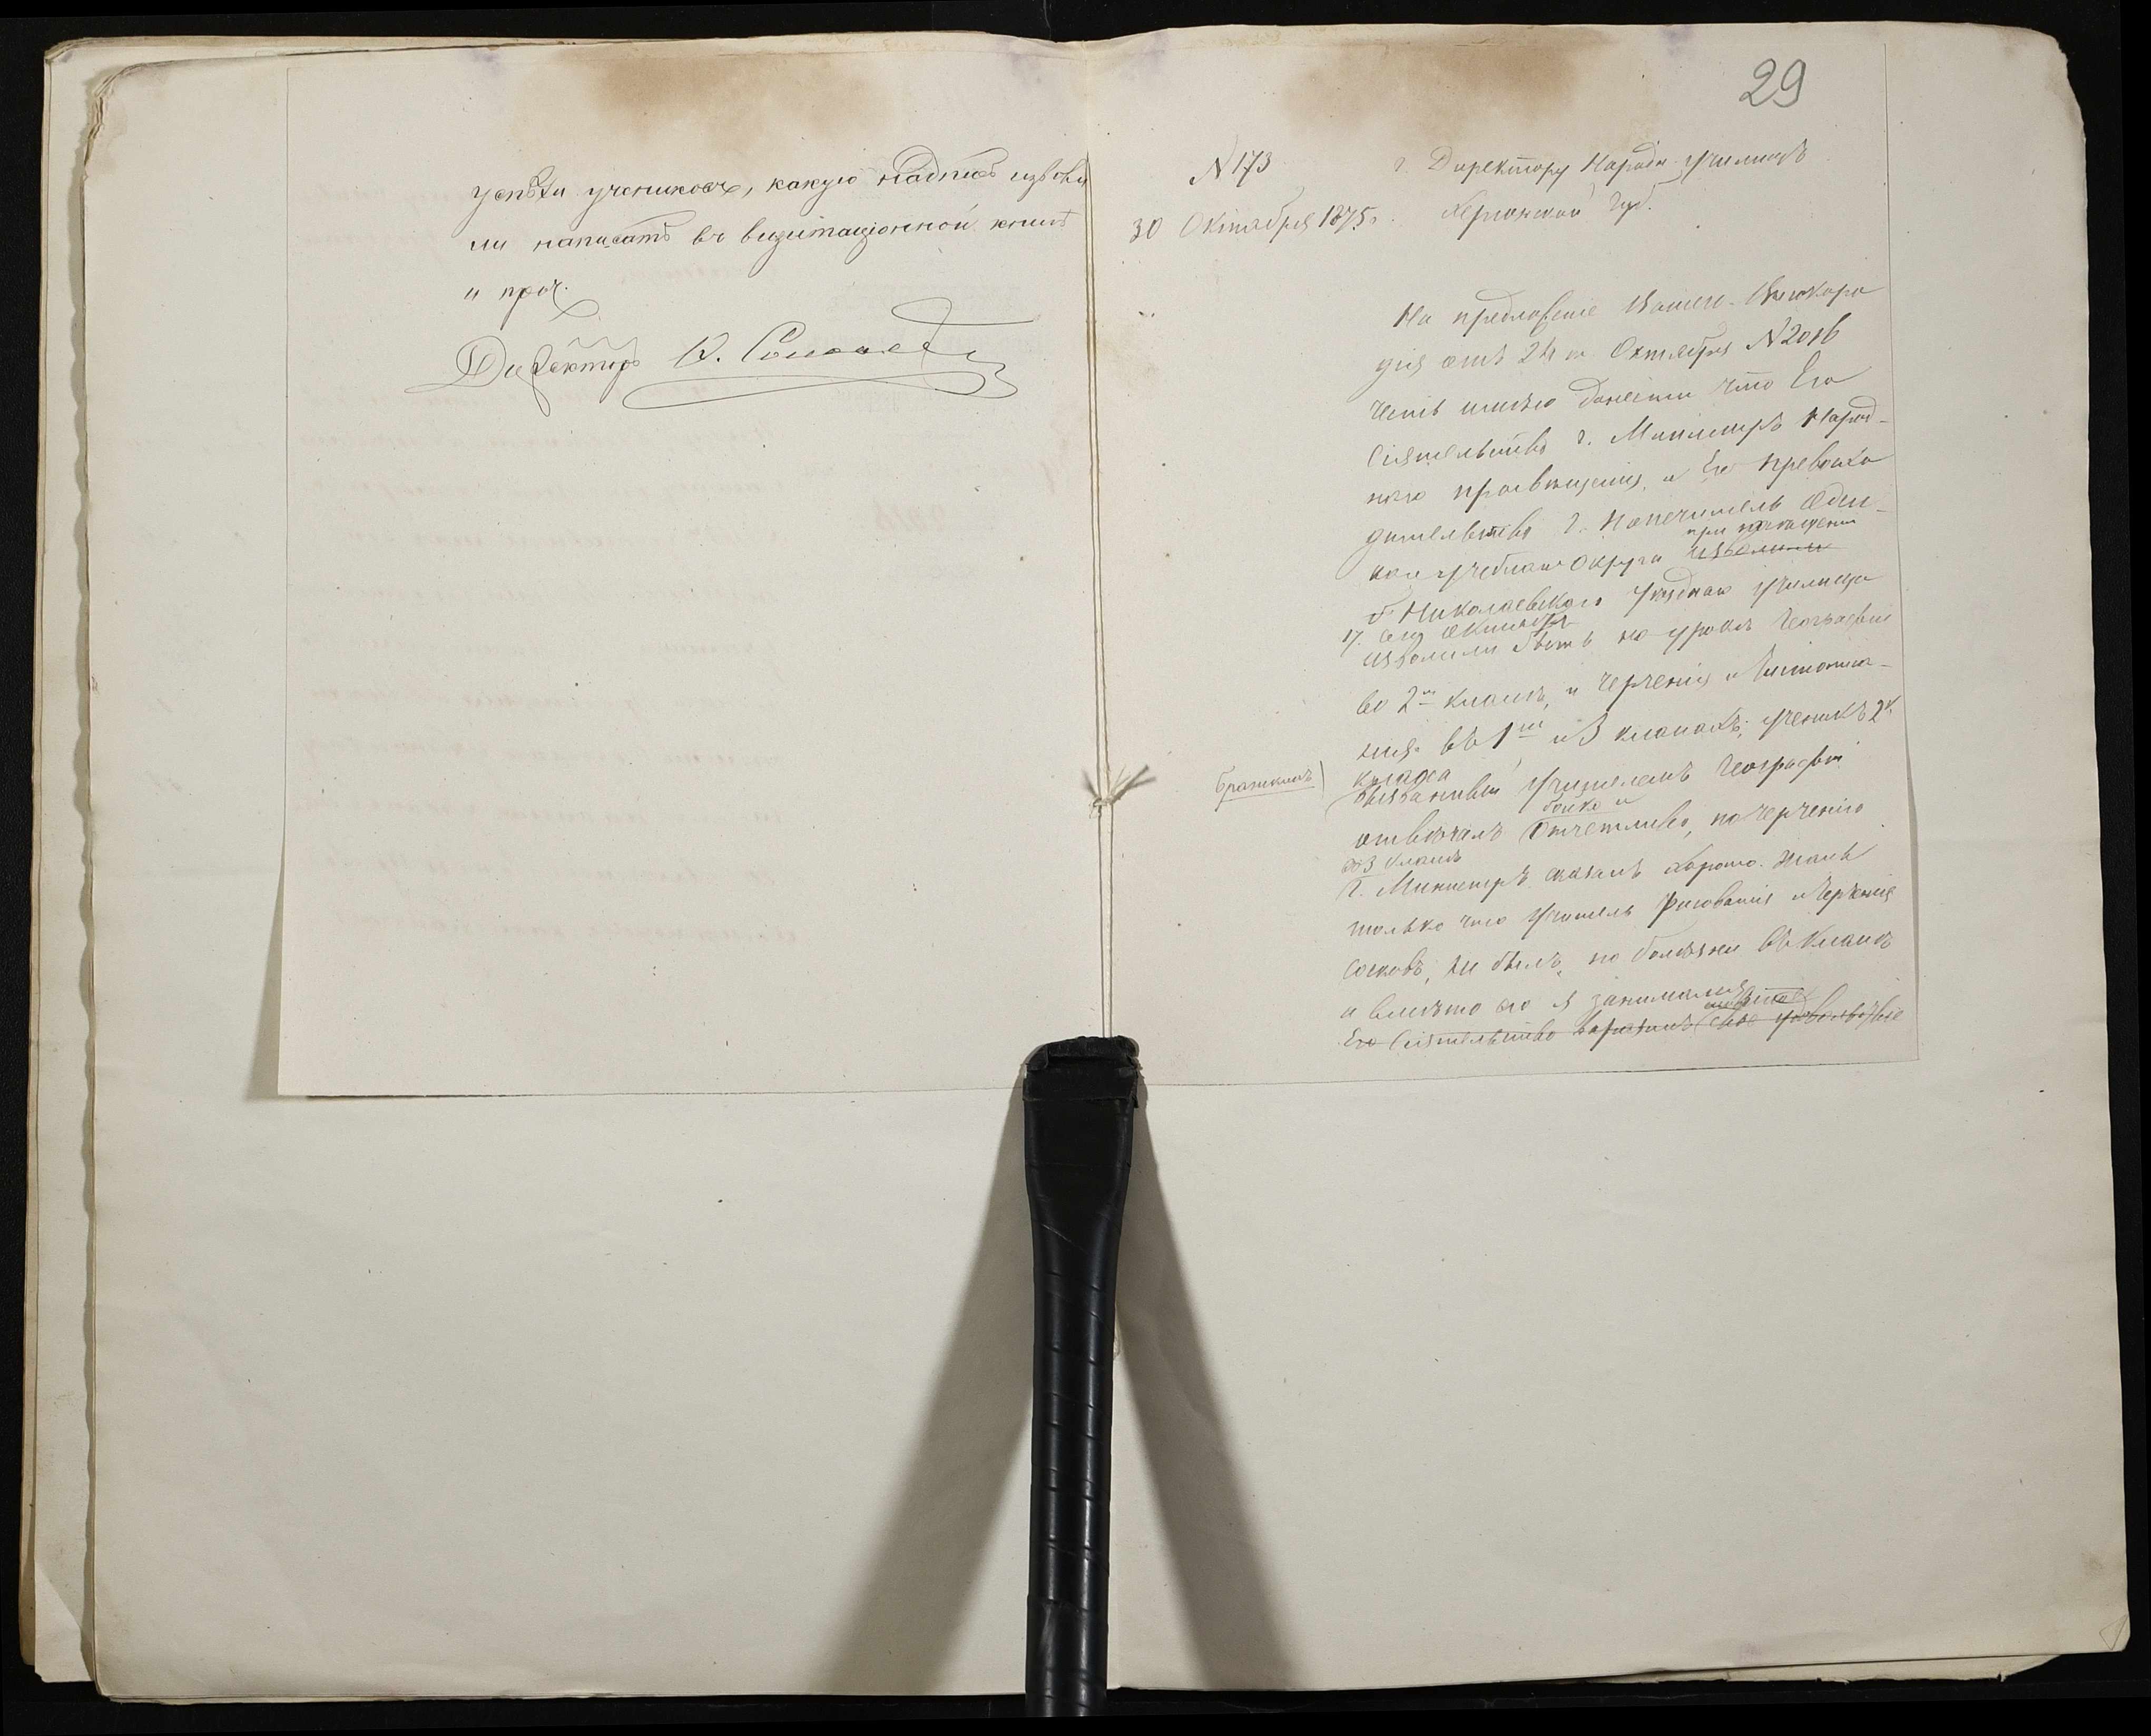 успѣхи учениковъ, какую надпись изволи
ли написать въ визитаціонной книгѣ
и проч.
Директоръ К.
29
N 173
г. Директору Народн. Училищъ
30 Октября 1875 г.
Херсонской Губ.
На предложеніе Вашего Высокоро
дія отъ 24 го Октября N 2016
честь имѣю донести что Его
Сіятельство г. Министръ Народ-
наго просвѣщенія, и Его Превосхо
дительство г. Попечитель Одес-
при посѣщеніи
каго учебнаго округа изволили
Николаевскаго Уѣзднаго училища
17 сего Октября
изволили быть на урокѣ Географіи
во 2мъ классѣ, и черченія и Чистописа-
нія въ 1мъ и 3 классахъ; ученикъ 2го
Класса
вызванный Учителемъ Географіи
бойко и
отвѣчалъ отчетливо, по черченію
въ 3 классѣ
г. Министръ сказалъ хорошо. Жаль
только что Учитель Рисованія и Черченія
не былъ, по болѣзни въ Классѣ
и вмѣсто его я занимался
Его Сіятельство свое удовольствіе